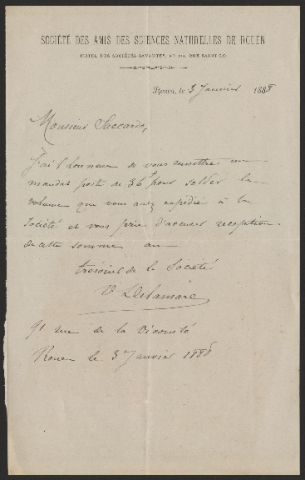 SOCIÉTÉ DES AMIS DES SCIENCES NATURELLES DE ROUEN
HÔTEL DES SOCIÉTÉS SAVANTES, 40 RUE SAINT-LO
Rouen, le 3 Janvier 1888
Monsieur Saccardo,
J'ai l'honneur de vous remettre un
mandat poste de 36f pour solder le
volume que vous avez expédié à la
Société et vous prie d'accuser reception
de cette somme au
trésorier de la Société
V. Delamare
91 rue de la Vicomté
Rouen le 3 Janvier 1888